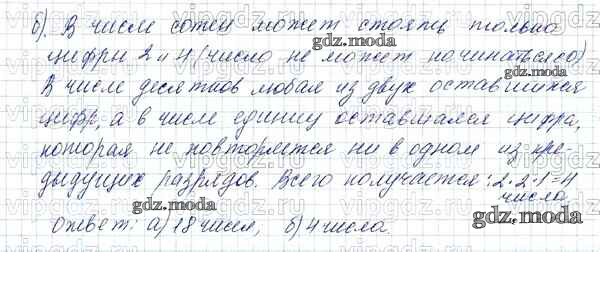 б). В числе сотен может стоять только
цифры 2 и 4 (число не может начинаться с 0)
В числе десятков любая из двух оставшихся
цифр, а в числе единиц оставшаяся цифра,
которая не повторяется ни в одном из пре-
дыдущих разрядов. Всего получается: 2·2·1=4
числа
Ответ: а) 18 чисел, б) 4 числа.
gdz.moda
gdz.moda
gdz.moda
gdz.moda
gdz.moda
gdz.moda